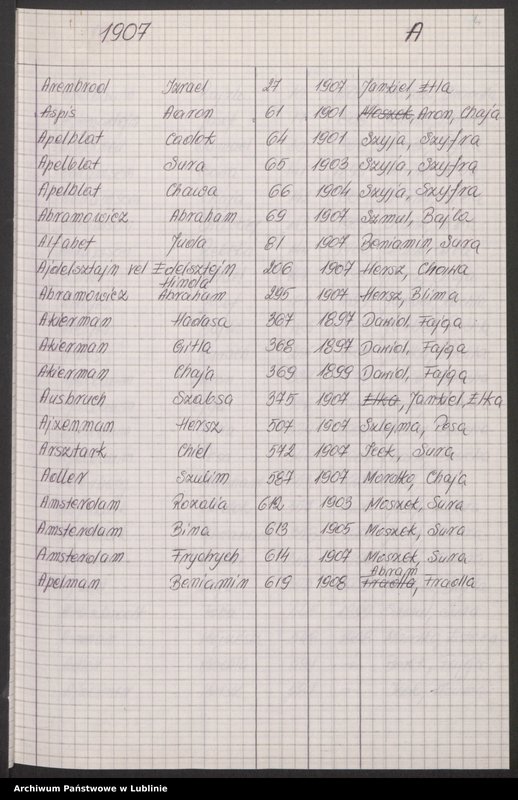 1907 A
Arenbrod Izrael 27 1907 Jankiel, Etla
Aspis Aaron 61 1901 Moszek, Aron, Chaja
Apelblat Cadok 64 1901 Szyja, Szyfra
Apelblat Sura 65 1903 Szyja, Szyfra
Apelblat Chawa 66 1904 Szyja, Szyfra
Abramowicz Abraham 69 1907 Szmul, Bajla
Alfabet Juda 81 1907 Beniamin, Sura
Ajdelsztajn vel Edelsztejn 206 1907 Hersz, Chawa
Hinda
Abramowicz Abraham 295 1907 Hersz, Blima
Akierman Hadasa 367 1897 Dawid, Fajga
Akierman Gitla 368 1897 Dawid, Fajga
Akierman Chaja 369 1899 Dawid, Fajga
Ausbruch Szabsa 375 1907 Etka, Jankiel, Etka
Ajzenman Hersz 507 1907 Szlejma, Pesa
Arsztark Chiel 572 1907 Icek, Sura
Adler Szulim 587 1907 Mordko, Chaja
Amsterdam Rozalia 612 1903 Moszek, Sura
Amsterdam Bina 613 1905 Moszek, Sura
Amsterdam Frydrych 614 1907 Moszek, Sura
Abram
Apelman Beniamin 619 1908 Fradla, Fradla
Archiwum Państwowe w Lublinie